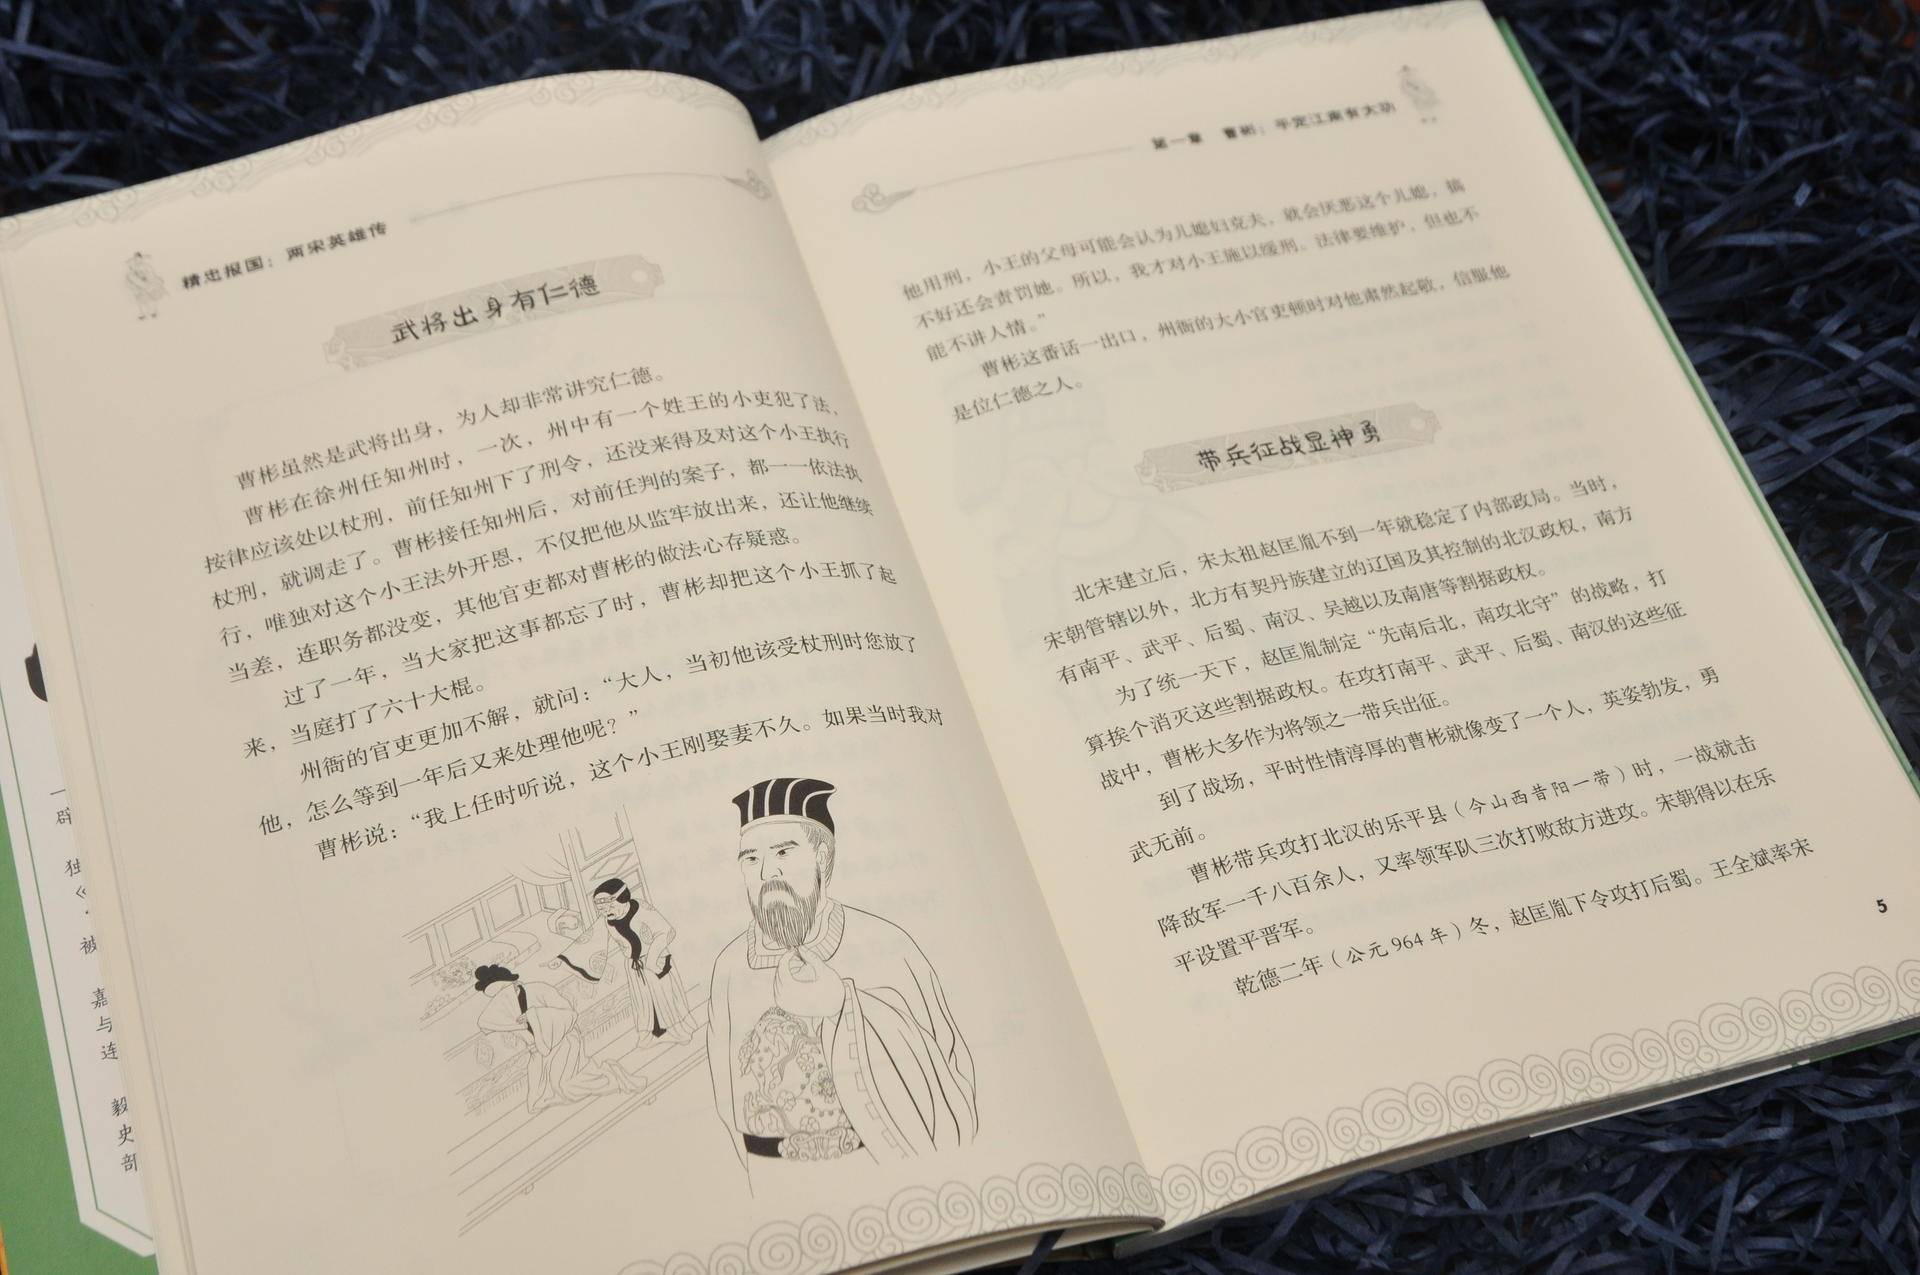 精忠报国：两宋英雄传
武将出身有仁德
曹彬虽然是武将出身，为人却非常讲究仁德。
曹彬在徐州任知州时，一次，州中有一个姓王的小吏犯了法，
按律应该处以杖刑，前任知州下了刑令，还没来得及对这个小王执行
杖刑，就调走了。曹彬接任知州后，对前任判的案子，都一一依法执
行，唯独对这个小王法外开恩，不仅把他从监牢放出来，还让他继续
当差，连职务都没变，其他官吏都对曹彬的做法心存疑惑。
过了一年，当大家把这事都忘了时，曹彬却把这个小王抓了起
来，当庭打了六十大棍。
州衙的官吏更加不解，就问：“大人，当初他该受杖刑时您放了
他，怎么等到一年后又来处理他呢？”
曹彬说：“我上任时听说，这个小王刚娶妻不久。如果当时我对
第一章 曹彬：平定江南有大功
他用刑，小王的父母可能会认为儿媳妇克夫，就会厌恶这个儿媳，搞
不好还会责罚她。所以，我才对小王施以缓刑。法律要维护，但也不
能不讲人情。”
曹彬这番话一出口，州衙的大小官吏顿时对他肃然起敬，信服他
是位仁德之人。
带兵征战显神勇
北宋建立后，宋太祖赵匡胤不到一年就稳定了内部政局。当时，
宋朝管辖以外，北方有契丹族建立的辽国及其控制的北汉政权，南方
有南平、武平、后蜀、南汉、吴越以及南唐等割据政权。
为了统一天下，赵匡胤制定“先南后北，南攻北守”的战略，打
算挨个消灭这些割据政权。在攻打南平、武平、后蜀、南汉的这些征
战中，曹彬大多作为将领之一带兵出征。
到了战场，平时性情淳厚的曹彬就像变了一个人，英姿勃发，勇
武无前。
曹彬带兵攻打北汉的乐平县（今山西昔阳一带）时，一战就击
降敌军一千八百余人，又率领军队三次打败敌方进攻。宋朝得以在乐
平设置平晋军。
乾德二年（公元964年）冬，赵匡胤下令攻打后蜀。王全斌率宋
5
独
被
嘉
与
连
毅
史
部